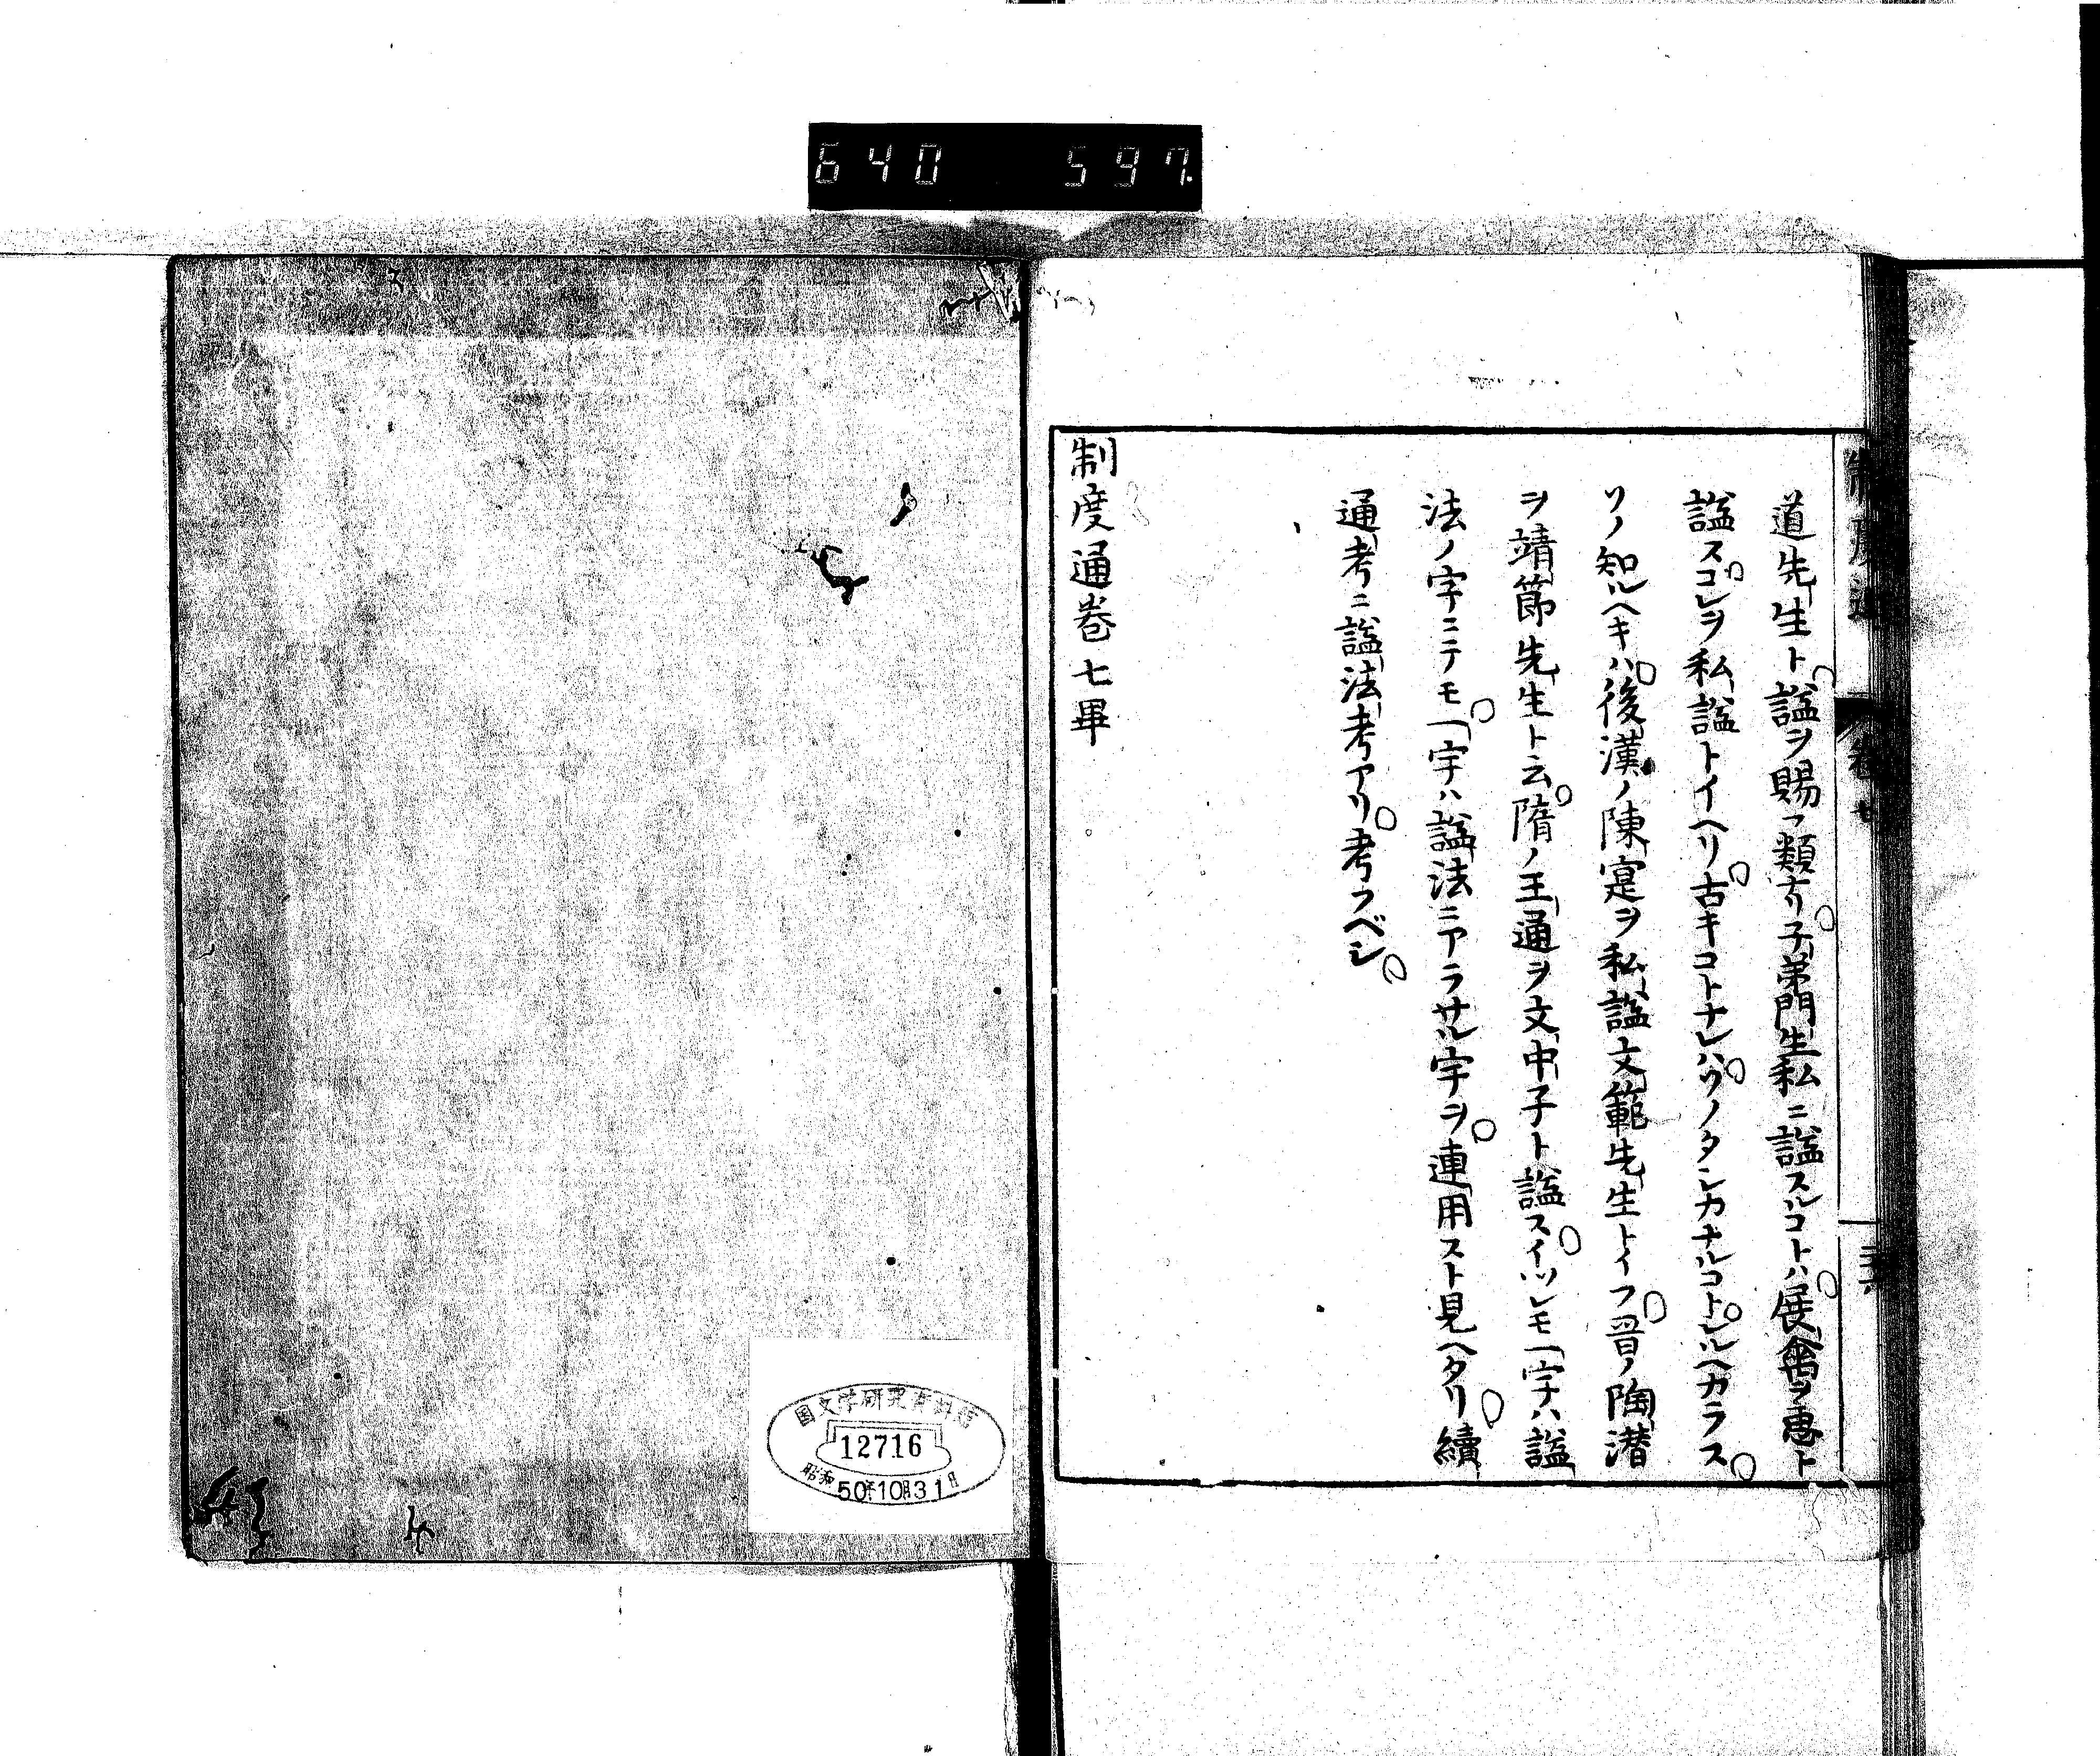 640 597.
制度通
卷七
道先生ト諡ヲ賜フ類ナリ子弟門生私ニ諡スルコトハ展禽ヲ惠ト
諡スコレヲ私諡トイヘリ古キコトナレハソノタシカナルコトシルヘカラス
ソノ知ルヘキハ後漢ノ陳寔ヲ私諡文範先生トイフ晉ノ陶潜
ヲ靖節先生ト云隋ノ王通ヲ文中子ト諡スイツレモ一字ハ諡
法ノ字ニテモ一字ハ諡法ニアラサル字ヲ連用スト見ヘタリ續
通考ニ諡法考アリ考フベシ
制度通卷七畢
国文学研究資料館
12716
昭和
50年10月31日